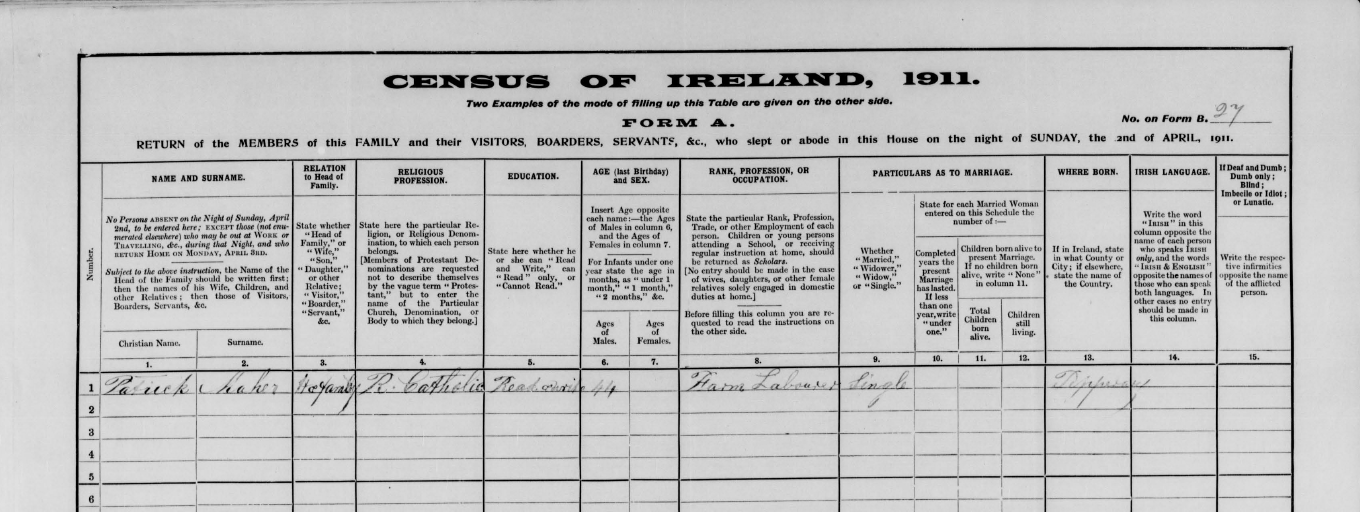 CENSUS OF IRELAND, 1911.
Two Examples of the mode of filling up this Table are given on the other side.
FORM A.
No. on Form B. 27
RETURN of the MEMBERS of this FAMILY and their VISITORS, BOARDERS, SERVANTS, &c., who slept or abode in this House on the night of SUNDAY, the 2nd of APRIL, 1911.
Number.
NAME AND SURNAME.
No Persons ABSENT on the Night of Sunday, April
2nd, to be entered here; EXCEPT those (not enu-
merated elsewhere) who may be out at WORK or
TRAVELLING, &c., during that Night, and who
RETURN HOME ON MONDAY, APRIL 3RD.
Subject to the above instruction, the Name of the
Head of the Family should be written first;
then the names of his Wife, Children, and
other Relatives; then those of Visitors,
Boarders, Servants, &c.
Christian Name.
Surname.
RELATION
to Head of
Family.
State whether
"Head of
Family," or
"Wife,"
"Son,"
"Daughter,"
or other
Relative;
"Visitor,"
"Boarder,"
"Servant,"
&c.
RELIGIOUS
PROFESSION.
State here the particular Re-
ligion, or Religious Denom-
ination, to which each person
belongs.
[Members of Protestant De-
nominations are requested
not to describe themselves
by the vague term "Protes-
tant," but to enter the
name of the Particular
Church, Denomination, or
Body to which they belong.]
EDUCATION.
State here whether he
or she can "Read
and Write," can
"Read" only, or
"Cannot Read."
AGE (last Birthday)
and SEX.
Insert Age opposite
each name:—the Ages
of Males in column 6,
and the Ages of
Females in column 7.
For Infants under one
year state the age in
months, as "under 1
month," "1 month,"
"2 months," &c.
Ages
of
Males.
Ages
of
Females.
RANK, PROFESSION, OR
OCCUPATION.
State the particular Rank, Profession,
Trade, or other Employment of each
person. Children or young persons
attending a School, or receiving
regular instruction at home, should
be returned as Scholars.
[No entry should be made in the case
of wives, daughters, or other female
relatives solely engaged in domestic
duties at home.]
Before filling this column you are re-
quested to read the instructions on
the other side.
PARTICULARS AS TO MARRIAGE.
Whether
"Married,"
"Widower,"
"Widow,"
or "Single."
State for each Married Woman
entered on this Schedule the
number of :—
Completed
years the
present
Marriage
has lasted.
If less
than one
year, write
"under
one."
Children born alive to
present Marriage.
If no children born
alive, write "None"
in column 11.
Total
Children
born
alive.
Children
still
living.
WHERE BORN.
If in Ireland, state
in what County or
City; if elsewhere,
state the name of
the Country.
IRISH LANGUAGE.
Write the word
"IRISH" in this
column opposite the
name of each person
who speaks IRISH
only, and the words
"IRISH & ENGLISH"
opposite the names of
those who can speak
both languages. In
other cases no entry
should be made in
this column.
If Deaf and Dumb;
Dumb only;
Blind;
Imbecile or Idiot;
or Lunatic.
Write the respec-
tive infirmities
opposite the name
of the afflicted
person.
1. 2. 3. 4. 5. 6. 7. 8. 9. 10. 11. 12. 13. 14. 15.
1 Patrick Maher R. Catholic 44 Farm Labourer Single Tipperary
2
3
4
5
6